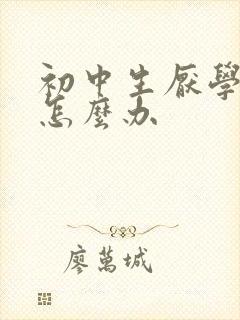 初中生厌學
怎麼办
廖萬城